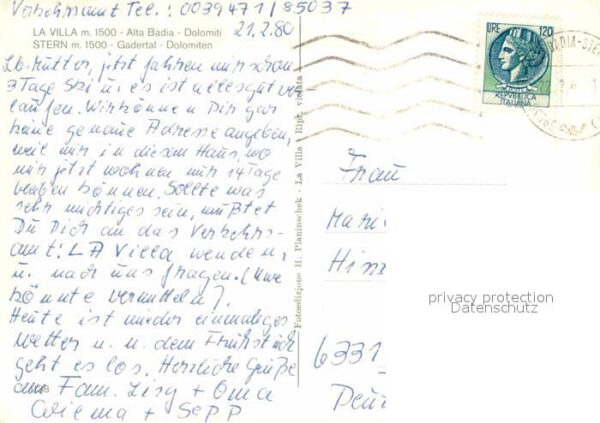 Verkehrsamt Tel.: 0039471/85037
21.2.80
LA VILLA m. 1500 - Alta Badia - Dolomiti
STERN m. 1500 - Gadertal - Dolomiten
Lb. Mutter, jetzt fahren wir schon
3 Tage Ski u. es ist alles gut ver-
laufen. Wir können Dir gar
keine genaue Adresse angeben,
weil wir in diesem Haus, wo
wir jetzt wohnen nur 14 Tage
bleiben können. Sollte was
sehr wichtiges sein, müßtet
Du Dich an das Verkehrs-
amt: LA Villa wenden,
u. nach uns fragen. (Uwe
könnte vermitteln).
Heute ist wieder einmaliges
Wetter u. n. dem Frühstück
geht es los. Herzliche Grüße
Fam. Lisy + Oma
+ Sepp
Fotoedizione H. Planinschek - La Villa - Ripr. vietata
LIRE 120
REPVBBLICA
ITALIANA
BADIA-STE
Frau
Mari
Hin
6331
Deu
privacy protection
Datenschutz